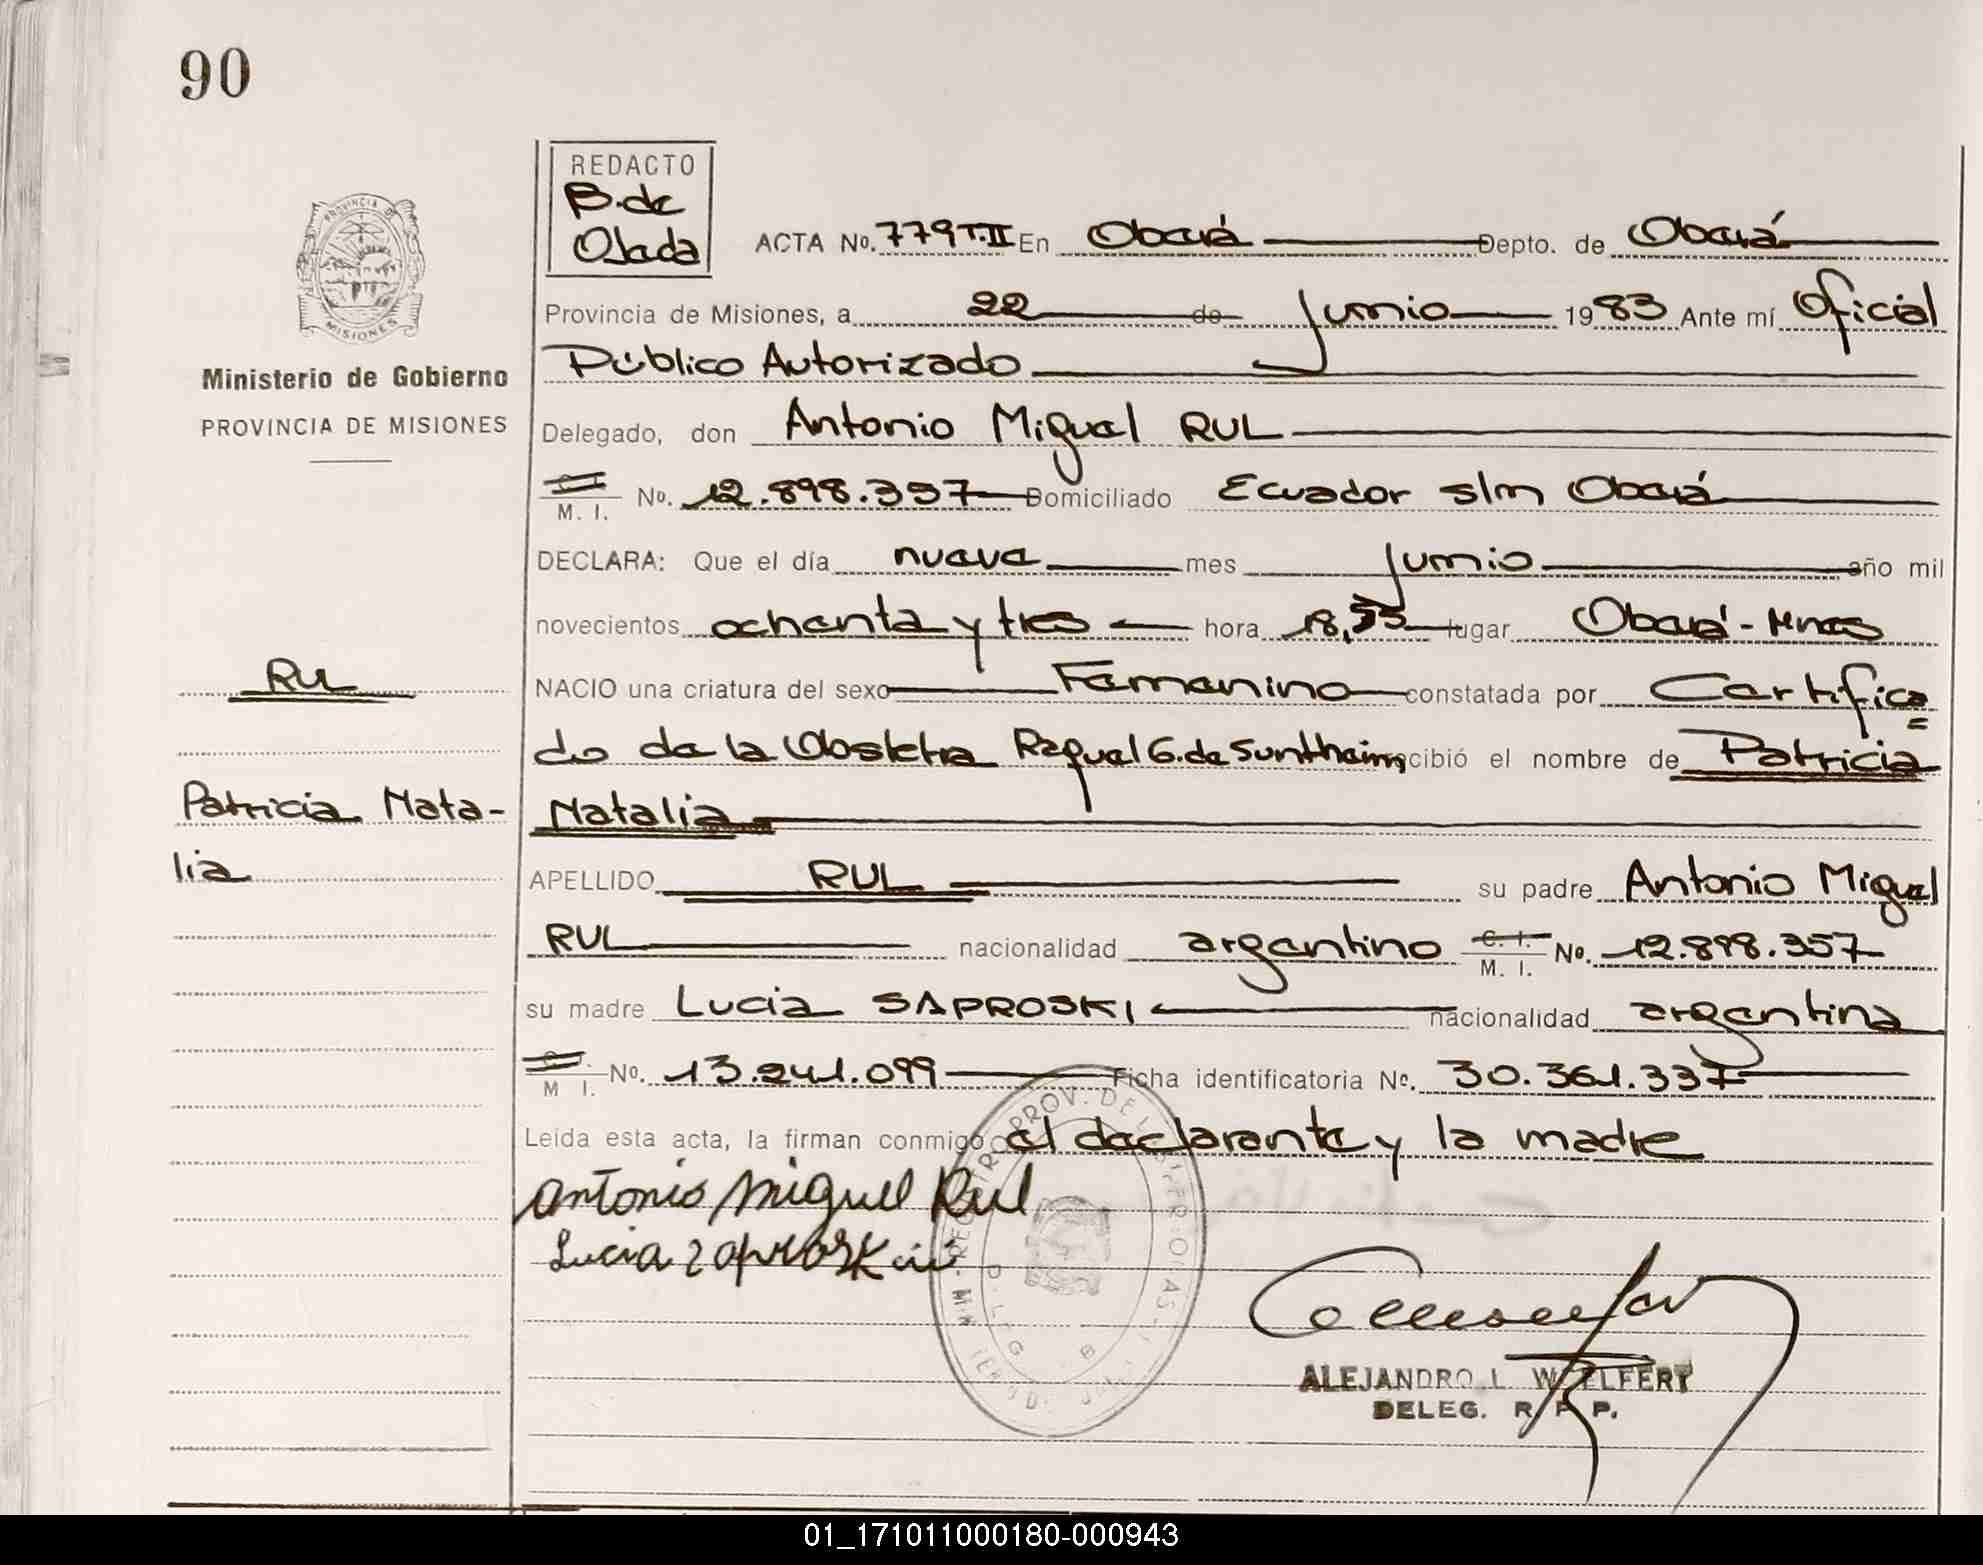 90
REDACTO
B. de
Ojeda
ACTA No. 779 T.II En Oberá Depto. de Oberá
Provincia de Misiones, a 22 de junio 1983 Ante mí Oficial
Público Autorizado
Delegado, don Antonio Miguel RUL
M. I. No. 12.898.357 Domiciliado Ecuador s/n Oberá
DECLARA: Que el día nueve mes junio año mil
novecientos ochenta y tres hora 18,55 lugar Oberá - Mnes
NACIO una criatura del sexo Femenino constatada por Certifica=
do de la Obstetra Raquel G. de Suntheim recibió el nombre de Patricia
Natalia
APELLIDO RUL su padre Antonio Miguel
RUL nacionalidad argentino C. I. M. I. No. 12.898.357
su madre Lucia SAPROSKI nacionalidad argentina
M I. No. 13.241.099 Ficha identificatoria No. 30.361.337
Leída esta acta, la firman conmigo el declarante y la madre
Antonio Miguel Rul
Lucia
ALEJANDRO L. WELFERT
DELEG. R. P. P.
PROVINCIA DE
MISIONES
Ministerio de Gobierno
PROVINCIA DE MISIONES
RUL
Patricia Nata-
lia
01_171011000180-000943